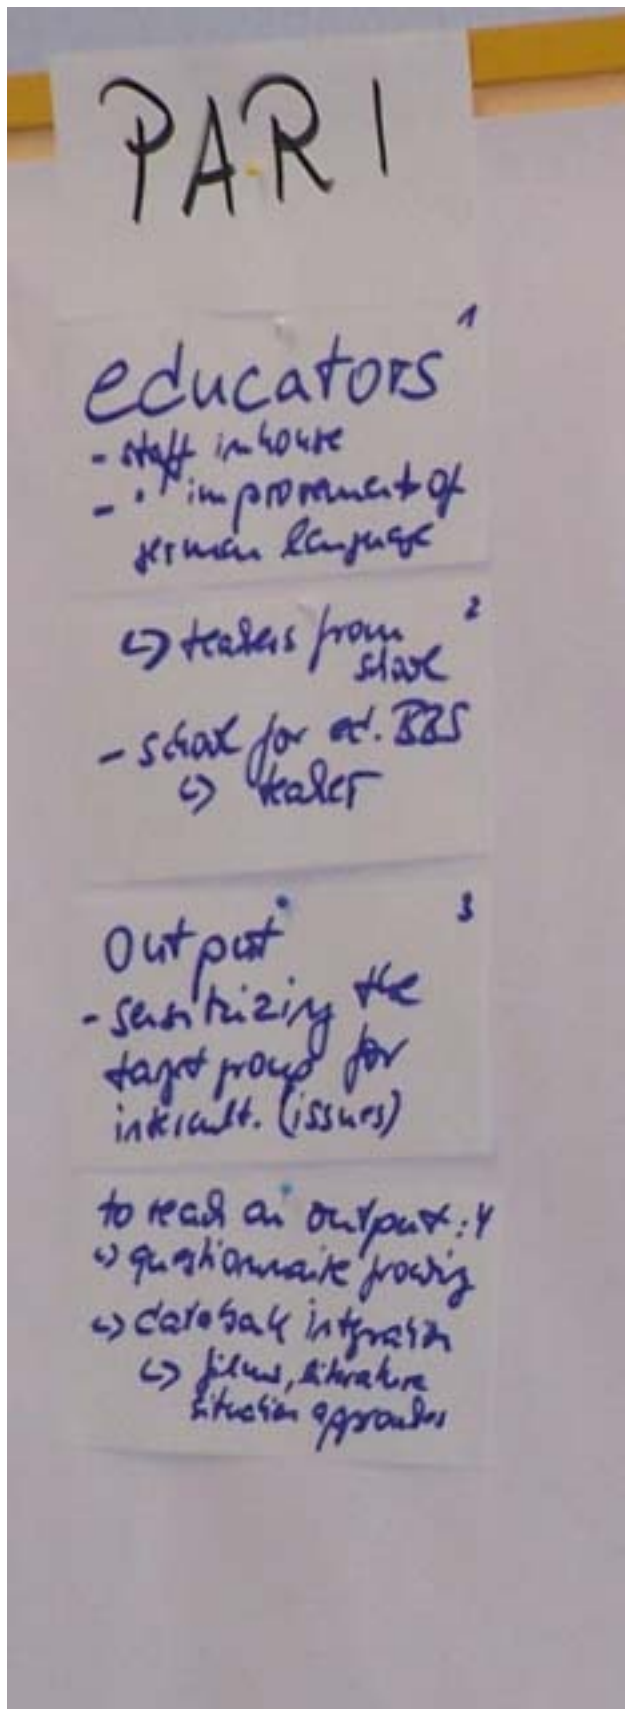 PARI
1
educators
- staff inhouse
- " improvement of
german language
2
↳ teachers from
school
- school for ed. BBS
↳ teacher
3
Output
- sensitizing the
target group for
intercult. (issues)
to reach an output: 4
↳ questionnaire
↳ databank integration
↳ films, literature
situation approaches